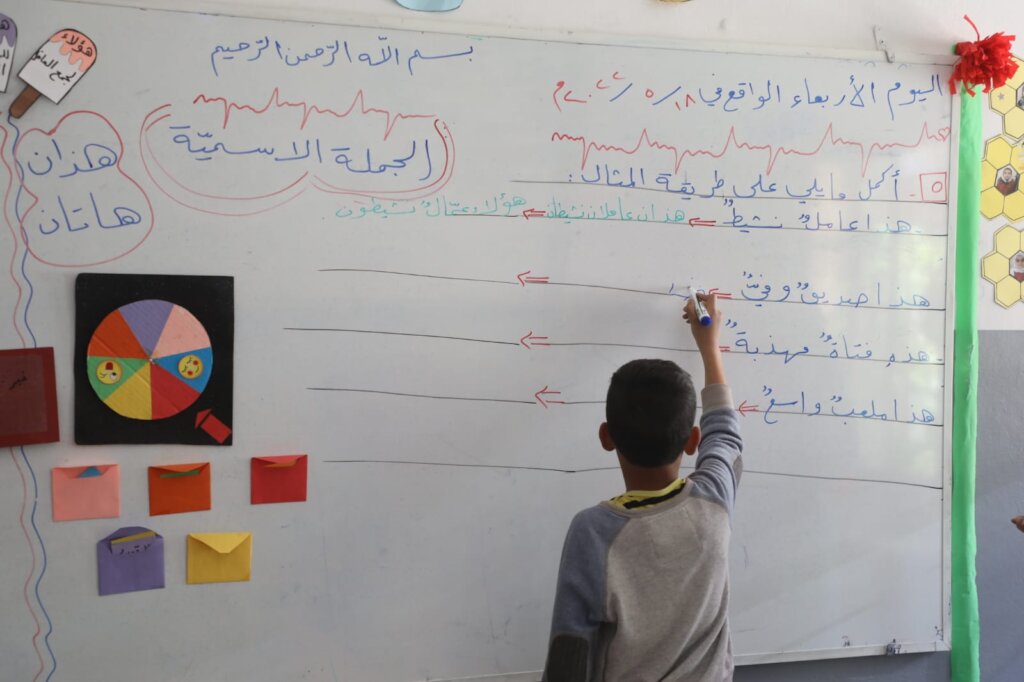 بسم الله الرّحمن الرّحيم
اليوم الأربعاء الواقع في ١٨/٥/٢٠٢٢م
الجملة الاسميّة
٥. أكمل ما يلي على طريقة المثال:
- هذا عاملٌ نشيطٌ ⇐ هذان عاملان نشيطان ⇐ هؤلاء عمّالٌ نشيطون
هذا صديقٌ وفيٌّ ⇐ هذا ⇐
- هذهِ فتاةٌ مهذبةٌ ⇐ ⇐
هذا ملعبٌ واسعٌ ⇐ ⇐
هؤلاء
هذان
هاتان